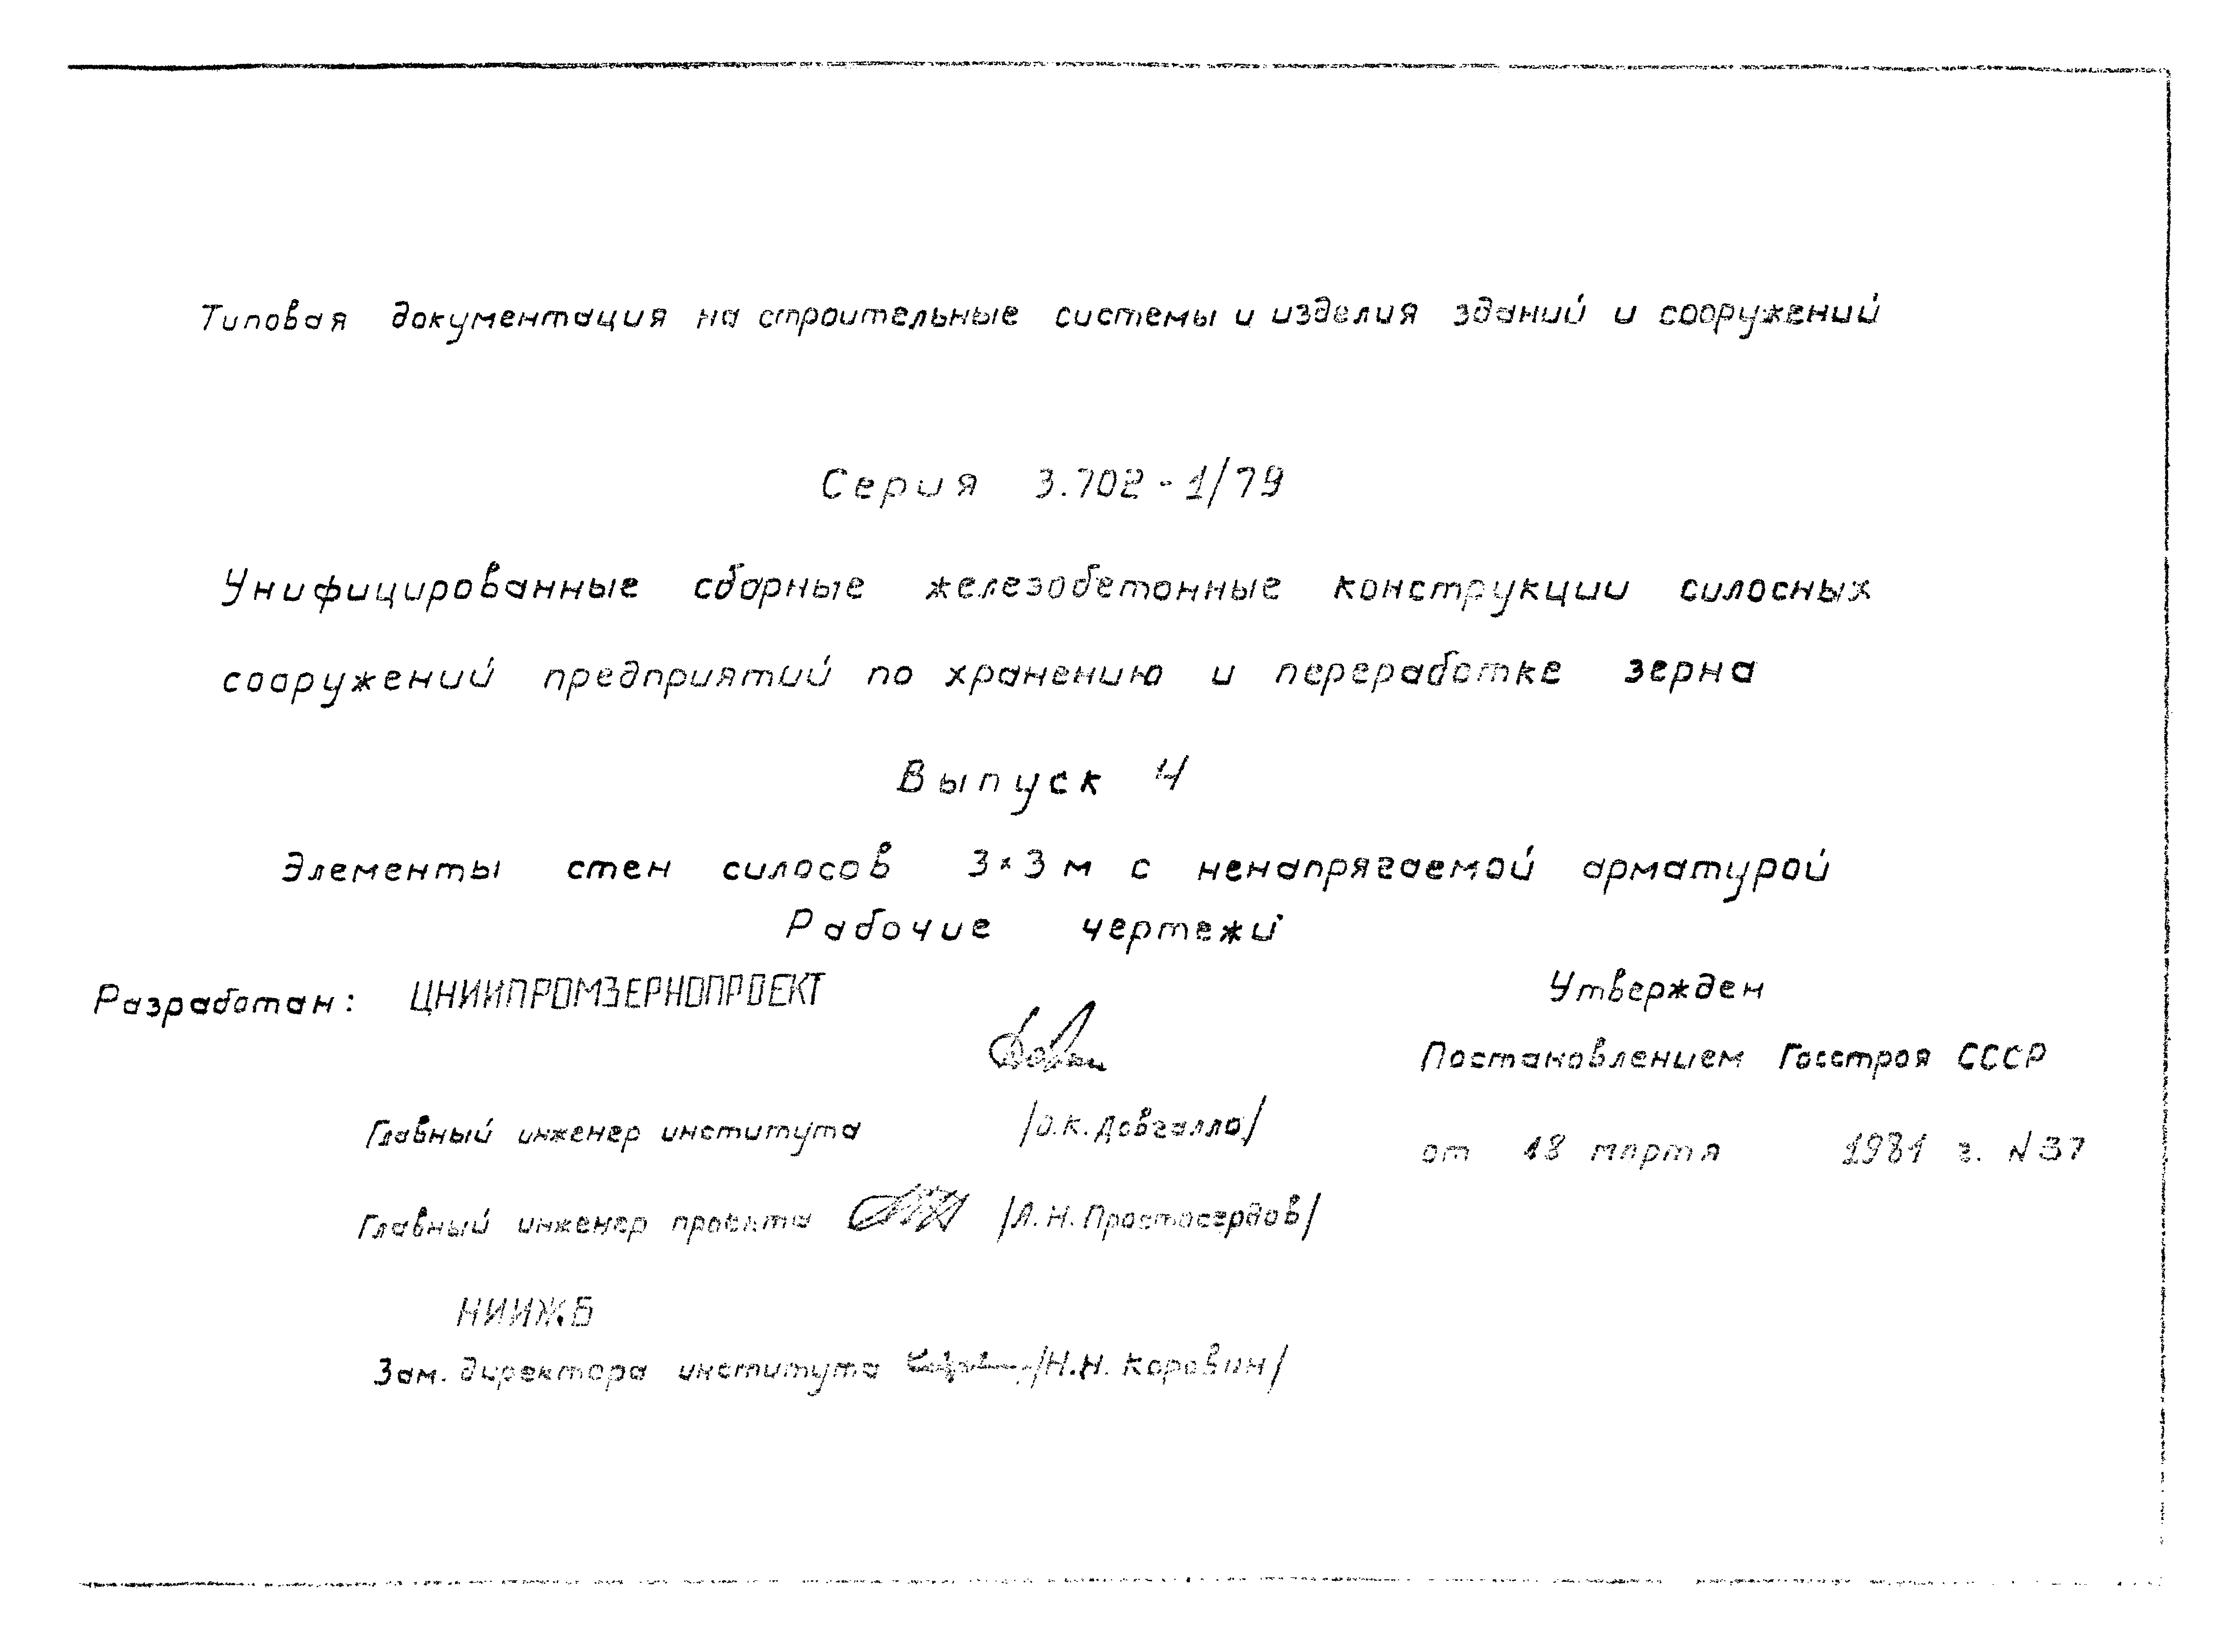 Типовая документация на строительные системы и изделия зданий и сооружений
Серия 3.702-1/79
Унифицированные сборные железобетонные конструкции силосных
сооружений предприятий по хранению и переработке зерна
Выпуск 4
Элементы стен силосов 3×3 м с ненапрягаемой арматурой
Рабочие чертежи
Разработан: ЦНИИПРОМЗЕРНОПРОЕКТ
Утвержден
Постановлением Госстроя СССР
Главный инженер института /О.К. Довгалло/
от 18 марта 1981 г. N 37
Главный инженер проекта /Л.Н. Простосердов/
НИИЖБ
Зам. директора института /Н.Н. Коровин/